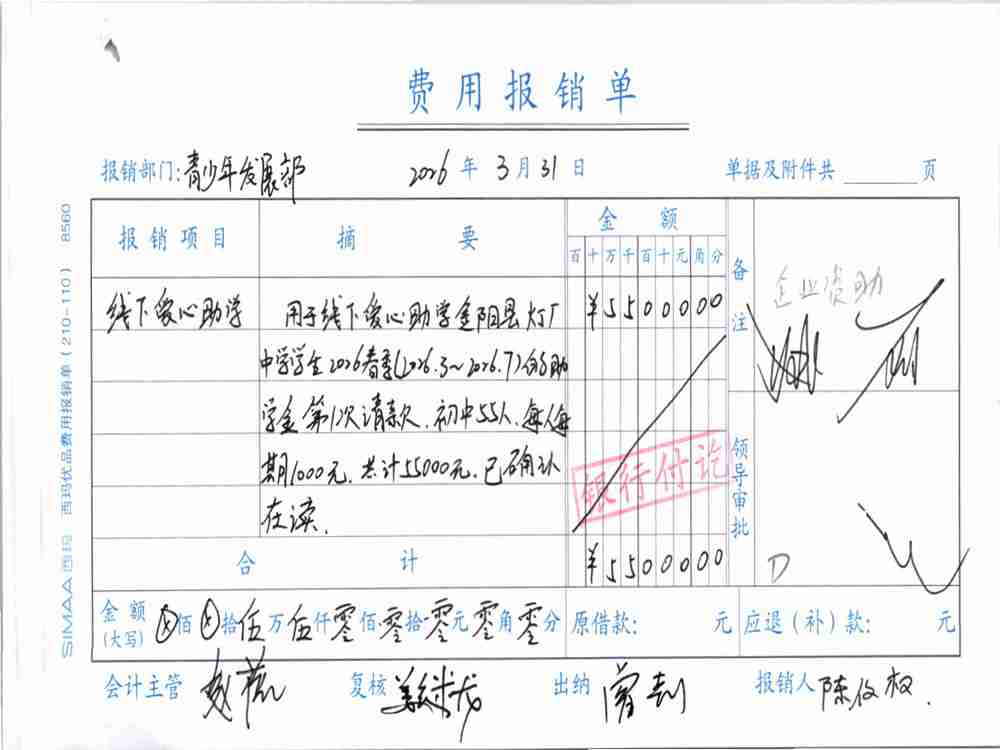 费用报销单
报销部门:青少年发展部 2026年3月31日 单据及附件共 页
SIMAA西玛 西玛优品费用报销单(210-110) 8560
报销项目 摘要 金额
百十万千百十元角分
备注
线下爱心助学 用于线下爱心助学金阳县灯厂 ¥5500000
企业资助
中学学生2026春季(2026.3~2026.7)的助
学金第1次请款.初中55人.每人每
期1000元.共计55000元.已确认
在读.
银行付讫
领导审批
合计 ¥5500000
金额(大写) 佰 拾伍万伍仟零佰零拾零元零角零分 原借款: 元 应退(补)款: 元
会计主管 复核 出纳 报销人